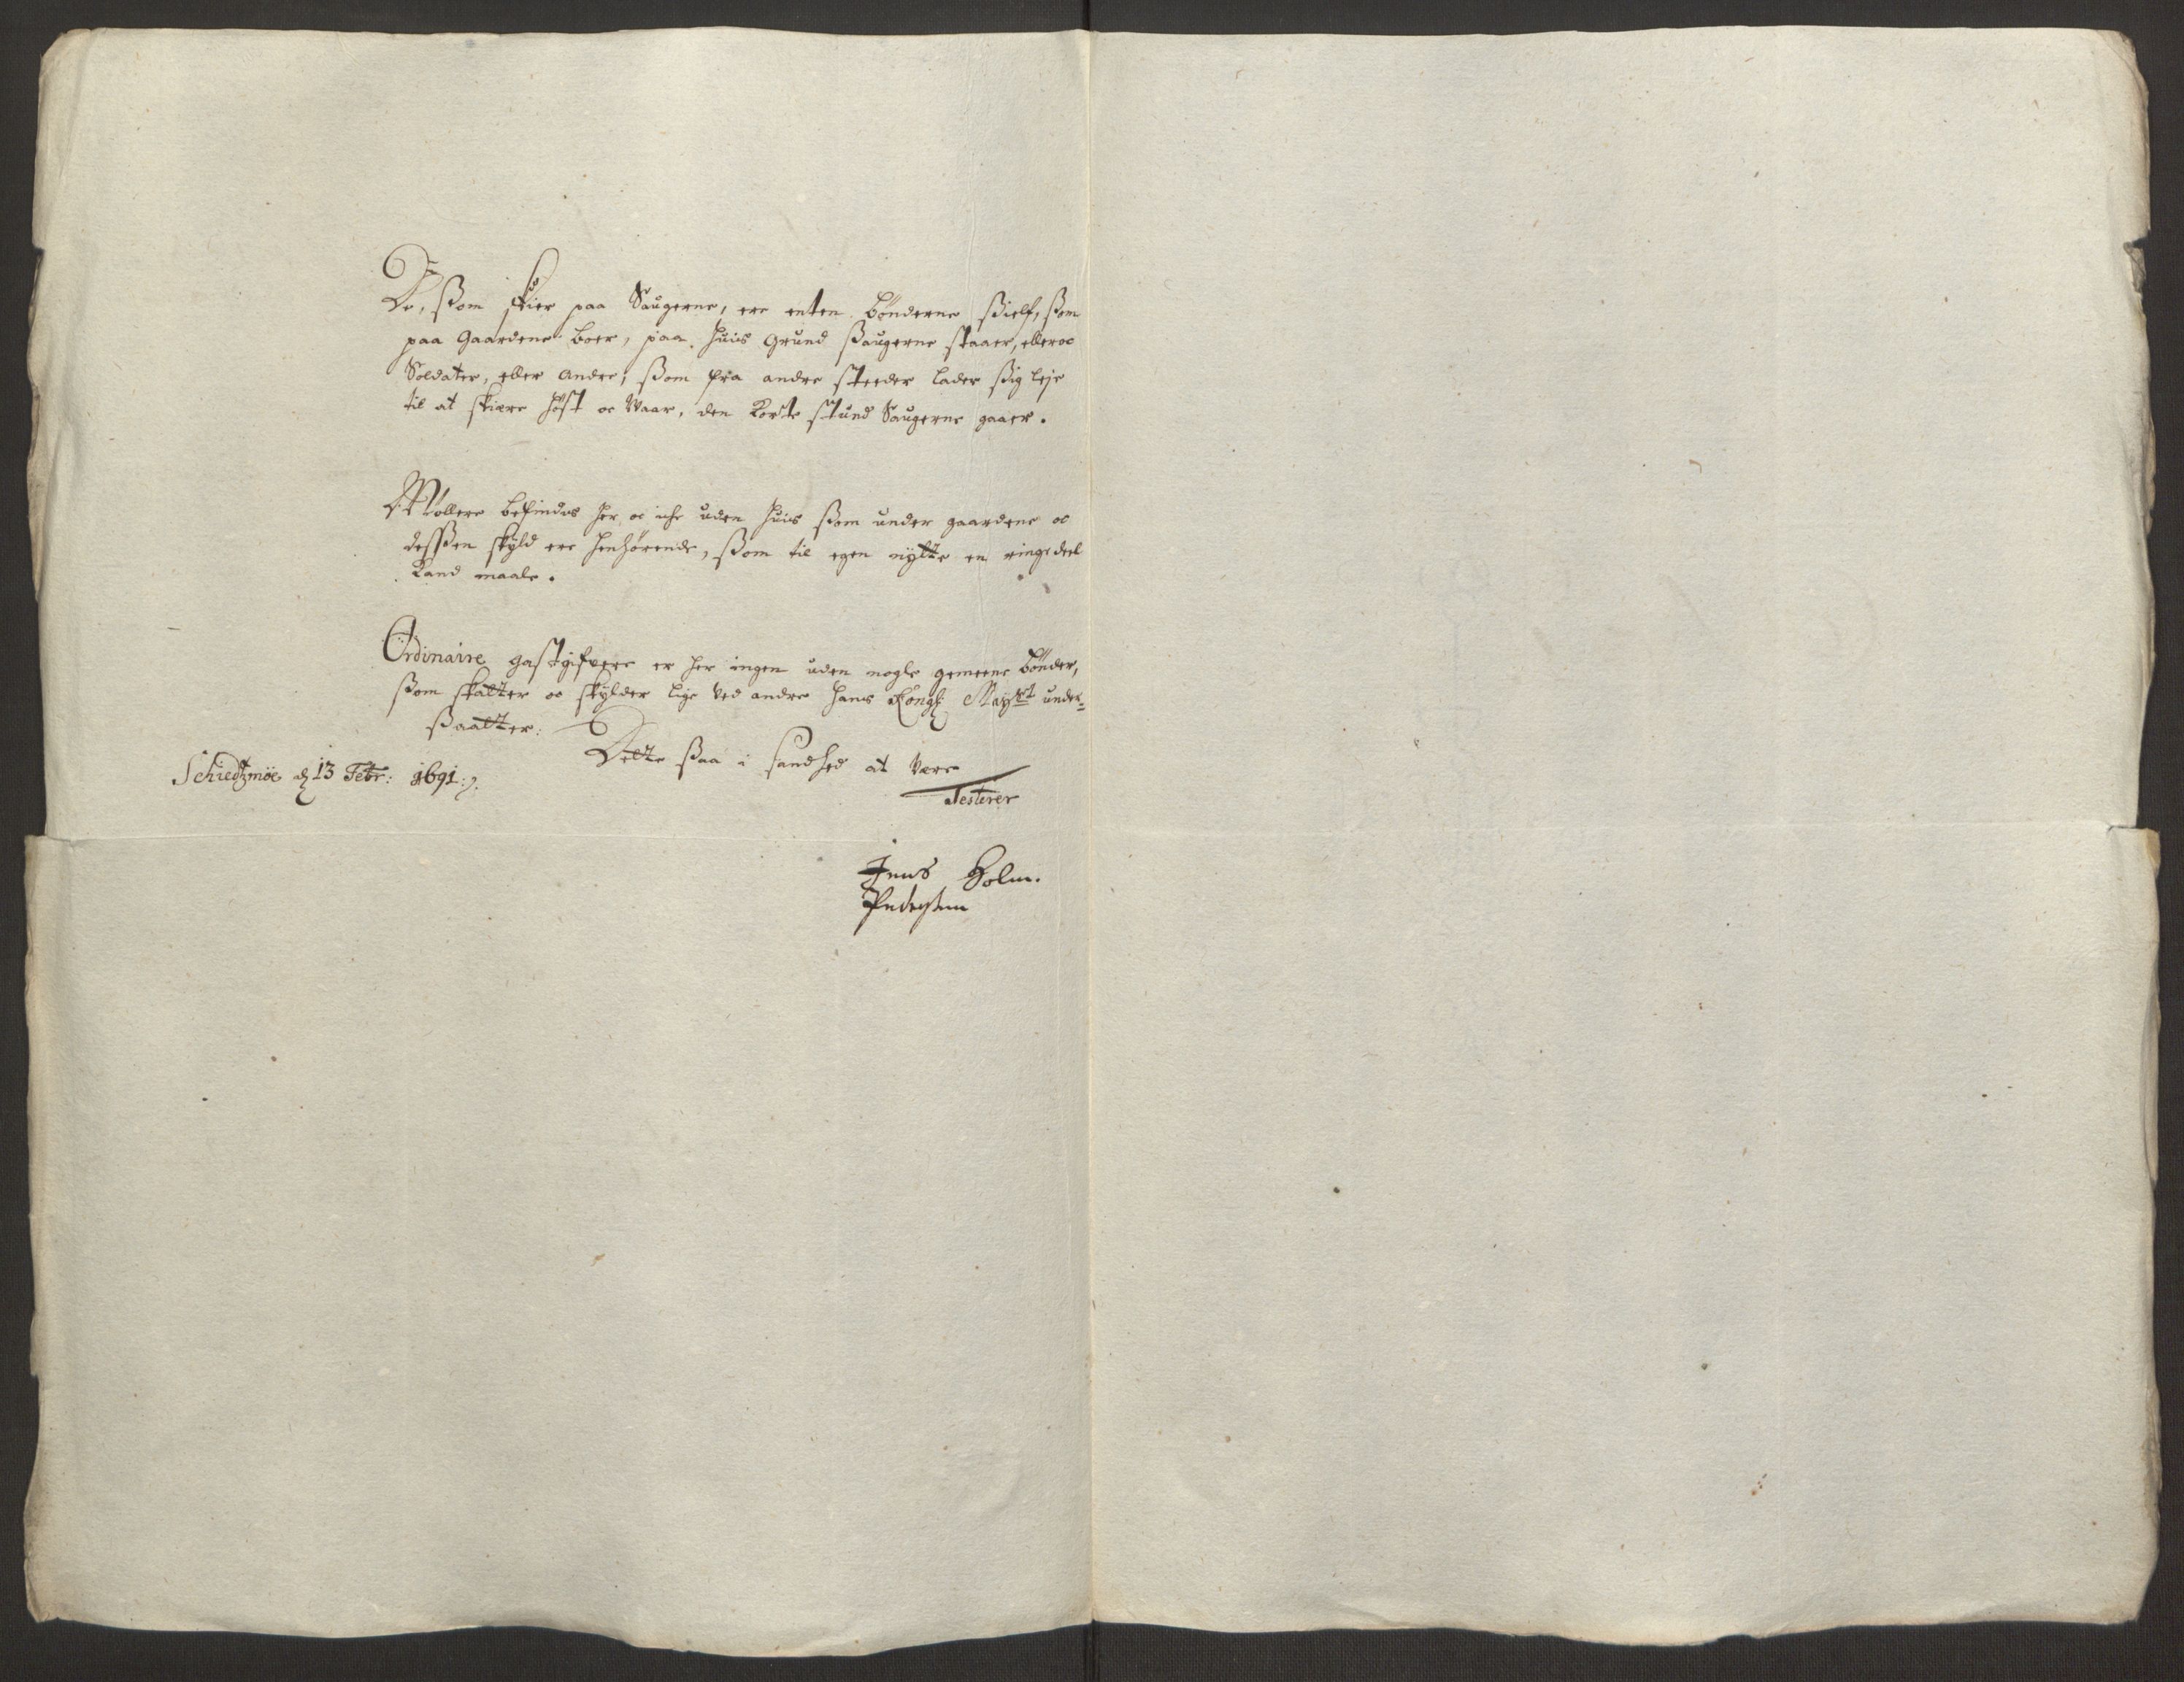 De, ßom skier paa Saugerne, ere enten bönderne ßielf, ßom
paa Gaardene boer, paa huis Grund ßaugerne staaer, eller oc
Soldater, eller andre, ßom fra andre steeder lader ßig leje
til at skiere höst oc Waar, den Korte stund Saugerne gaaer.
Möllere befindes her oc iche uden huis ßom under gaardene oc
dessßen skyld ere henhörende, ßom til egen nytte en ringe deel
Kand maale.
Ordinaire gastgifvere er her ingen uden nogle gemeene bönder,
ßom skatter oc skylder lige ved andre hans Kongl: Mayst under=
ßaatter.
Dette ßaa i sandhed at være
Schiedtzmöe d 13 Febr: 1691:
Testerer
Jens Holm.
Pederßen